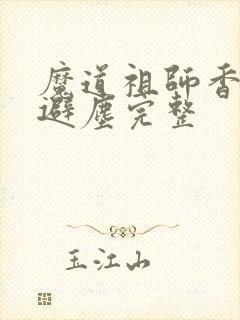 魔道祖师香
避尘完整
玉江山